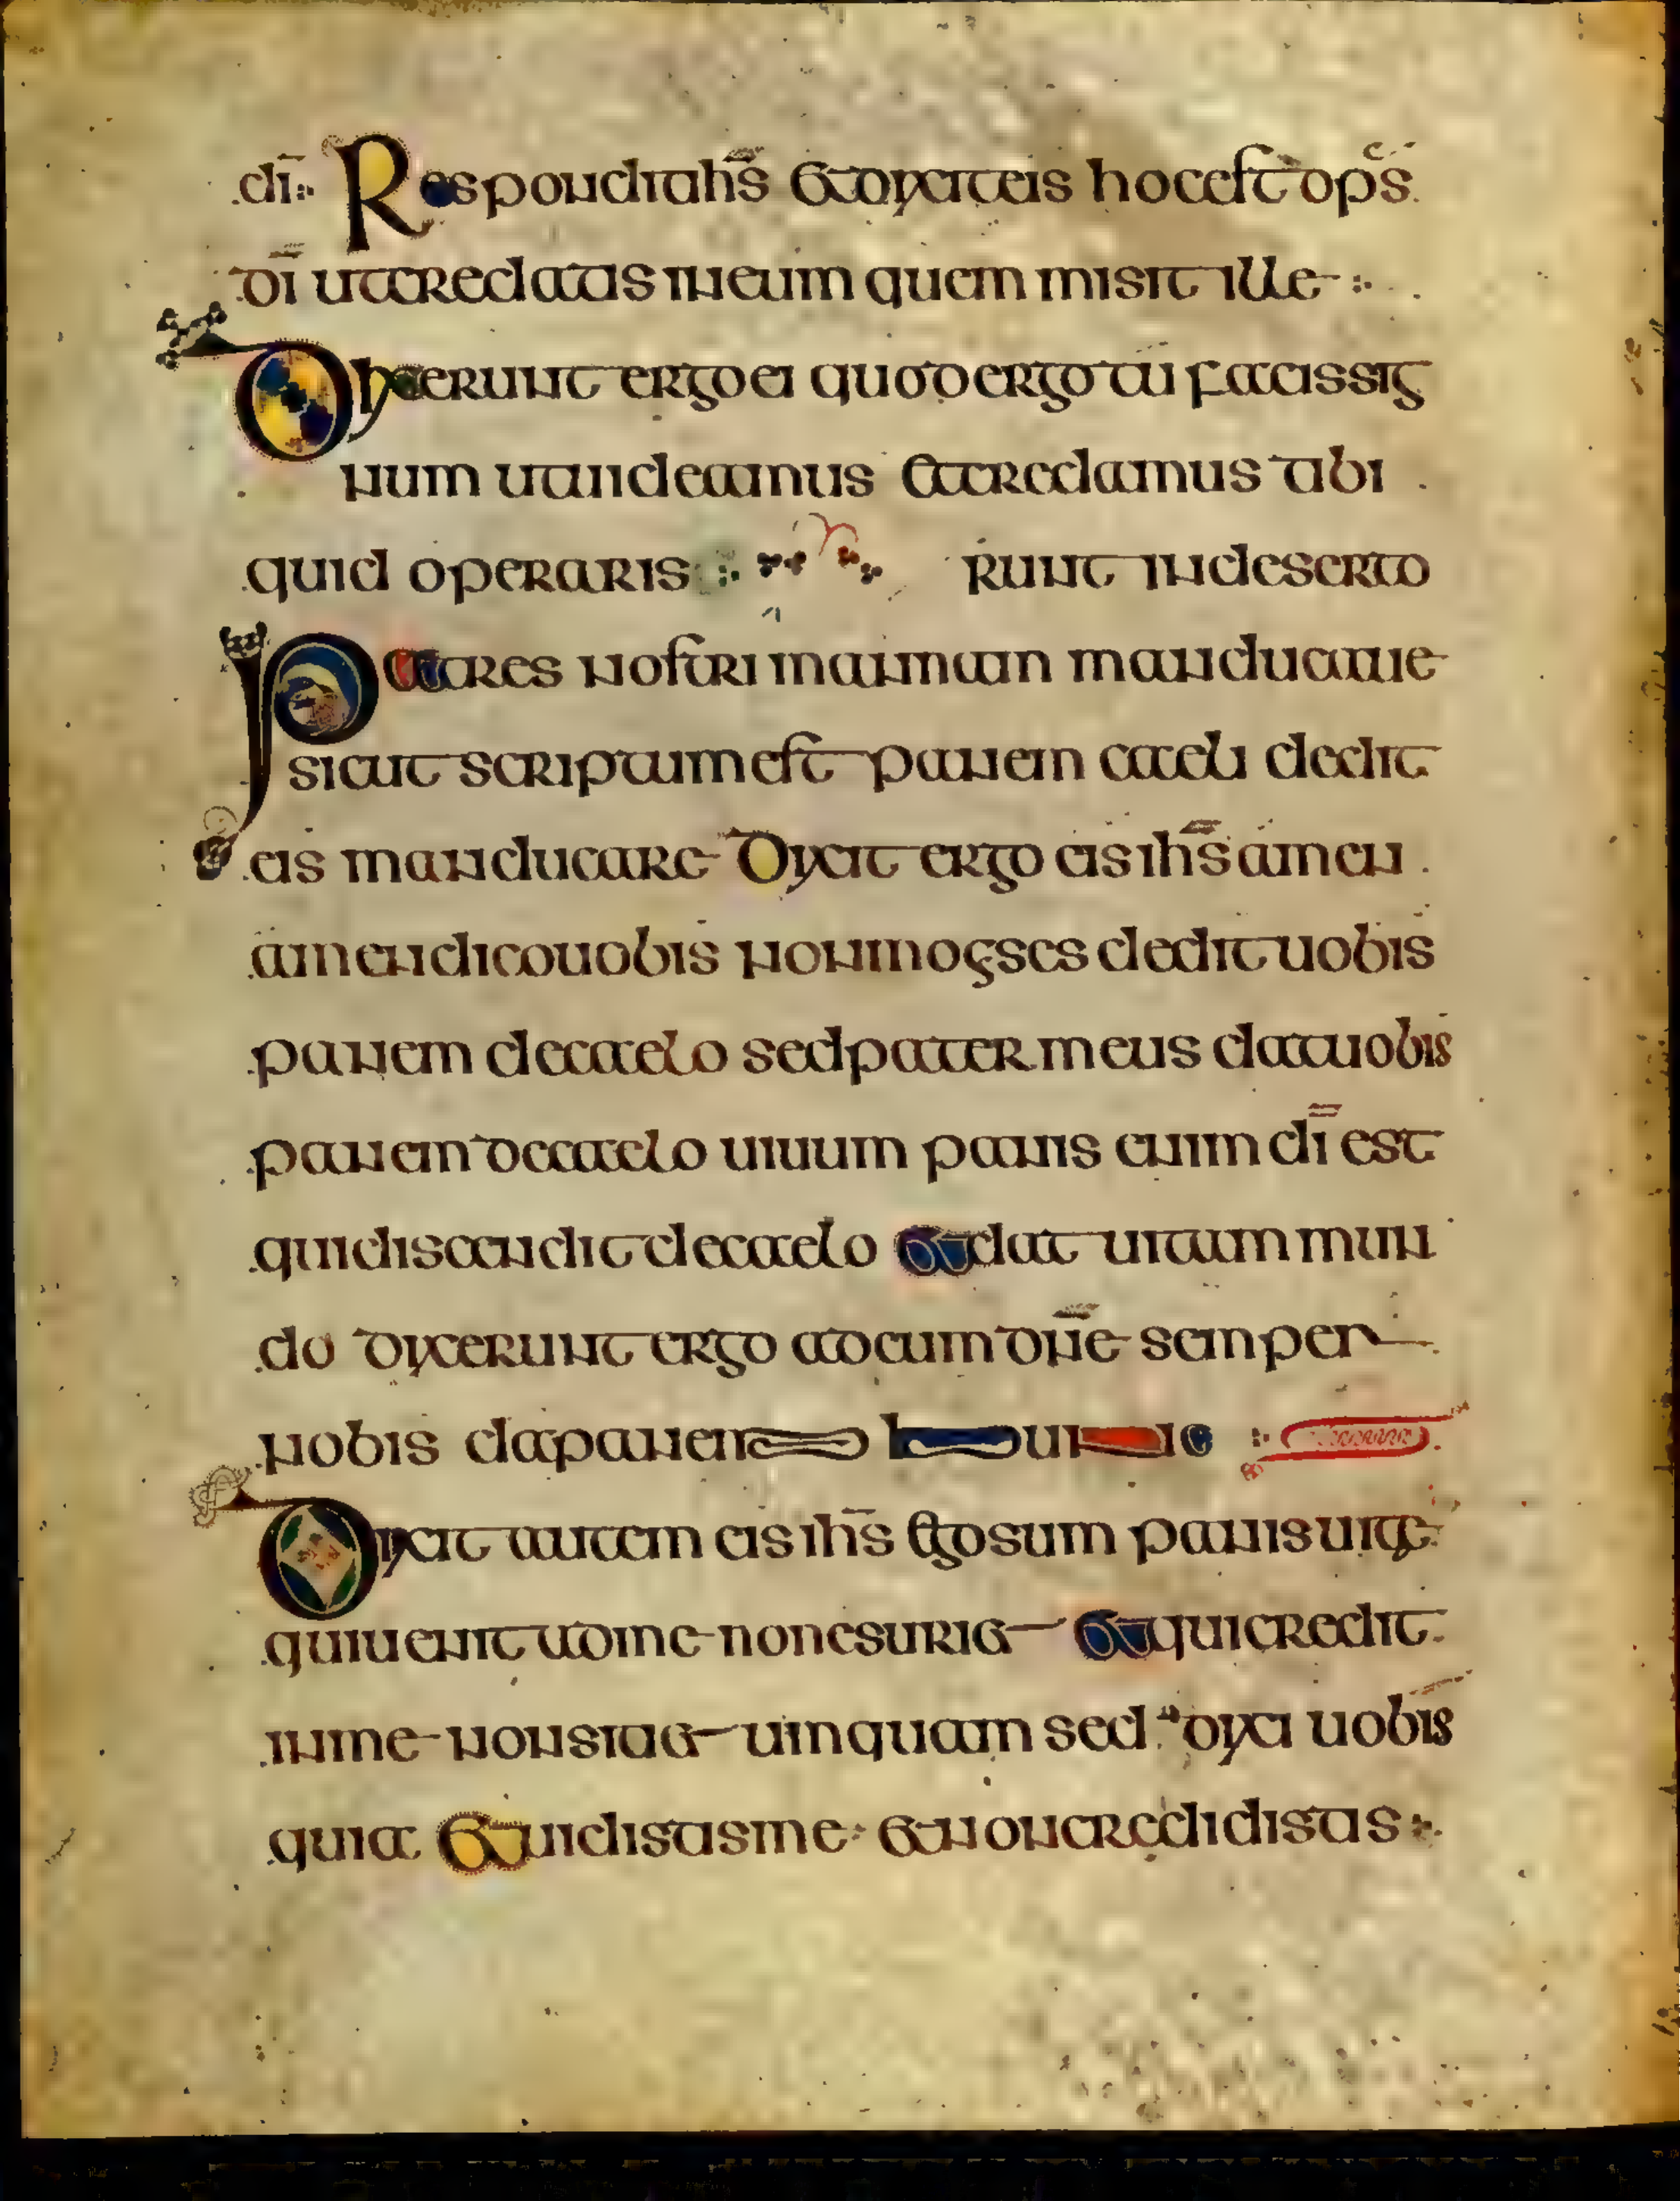 dī Respondit ihs̄ et dixit eis hoc est op̄s
dī ut credatis in eum quem misit ille
Dixerunt ergo ei quod ergo tu facis sig
num ut uideamus et credamus tibi
quid operaris runt in deserto
Patres nostri manna manducaue
sicut scriptum est panem caeli dedit
eis manducare Dixit ergo eis ihs̄ amen
amen dico uobis non moyses dedit uobis
panem de caelo sed pater meus dat uobis
panem de caelo uiuum panis enim dī est
qui discendit de caelo et dat uitam mun
do dixerunt ergo ad eum dn̄e semper
nobis da panem hunc
Dixit autem eis ihs̄ ego sum panis uitę
qui uenit ad me non esuriet et qui credit
in me non sitiet umquam sed dixi uobis
quia et uidistis me et non credidistis